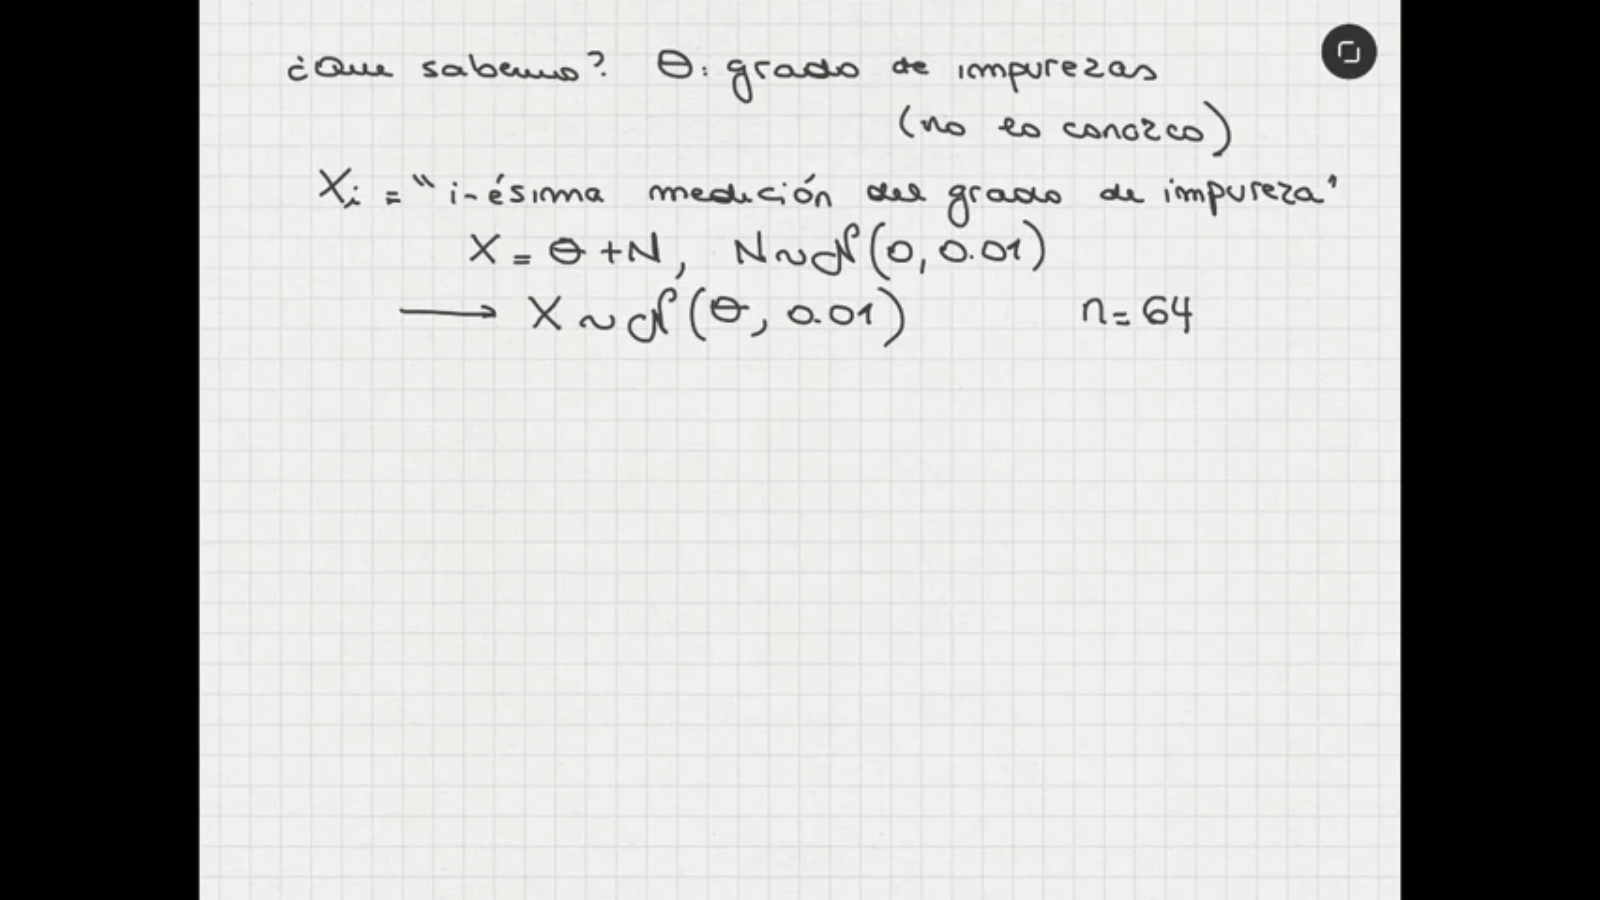 ¿Que sabemos? θ: grado de impurezas
(no lo conozco)
Xi = "i-ésima medición del grado de impureza"
X = θ + N, N ~ 𝒩(0, 0.01)
→ X ~ 𝒩(θ, 0.01) n = 64